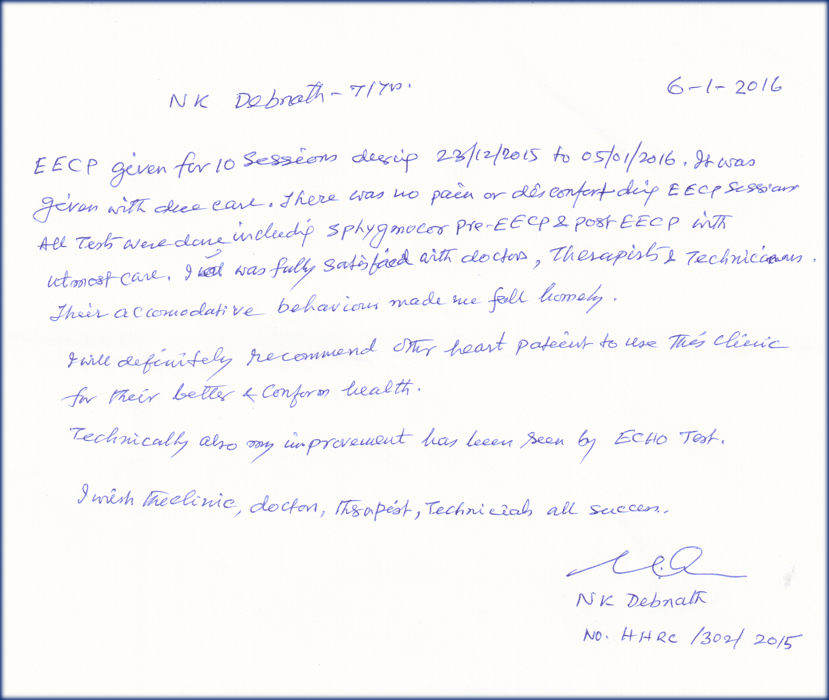 NK Debnath - 71 yrs. 6-1-2016
EECP given for 10 Sessions during 23/12/2015 to 05/01/2016. It was
given with due care. There was no pain or disconfort ding EECP Sessions
All Tests were done includig Sphygmocor Pre-EECP & post EECP with
utmost care. I was fully satisfied with doctors, Therapists & Technicians.
Their accomodative behaviour made me fell homely.
I will definitely recommend other heart patient to use this clinic
for their better & Conform health.
Technically also my improvement has been seen by ECHO Test.
I wish the clinic, doctors, therapist, Technicials all success.
NK Debnath
No. HHRC /302/ 2015